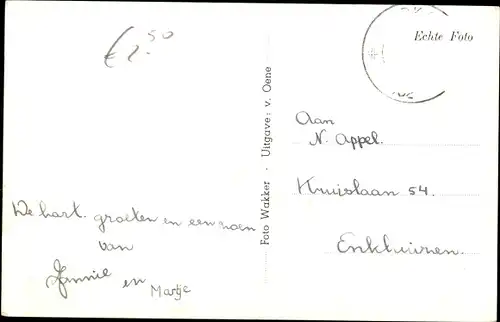 € 2.50
Echte Foto
Aan
N. Appel.
Kruislaan 54.
Enkhuizen.
Foto Wakker - Uitgave: v. Oene
De hart. groeten en een zoen
van
Jannie en Martje